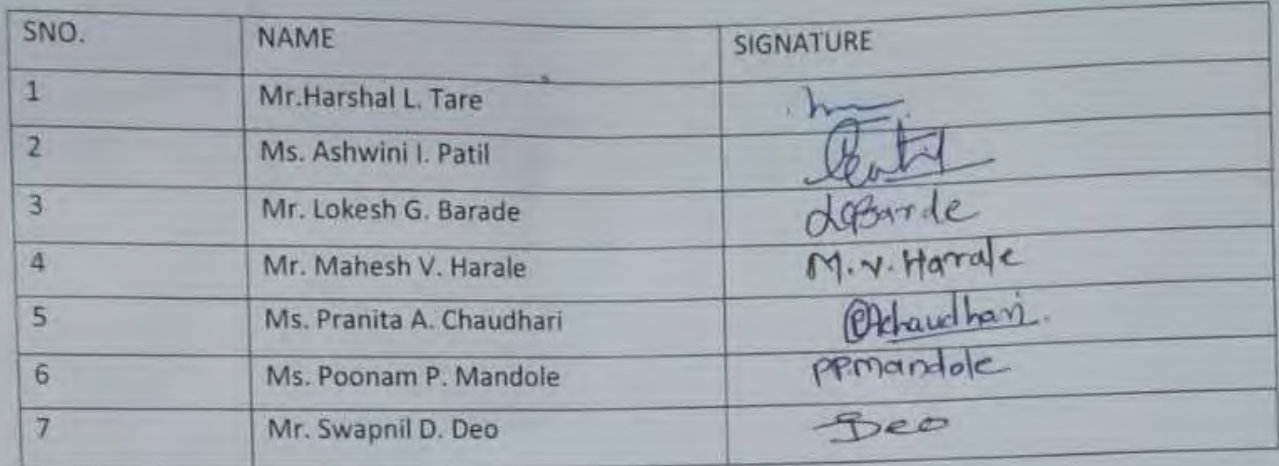 SNO. NAME SIGNATURE
1 Mr.Harshal L. Tare
2 Ms. Ashwini I. Patil
3 Mr. Lokesh G. Barade LGBarde
4 Mr. Mahesh V. Harale M.V. Harrale
5 Ms. Pranita A. Chaudhari PAchaudhari.
6 Ms. Poonam P. Mandole P.P.mandole
7 Mr. Swapnil D. Deo Deo